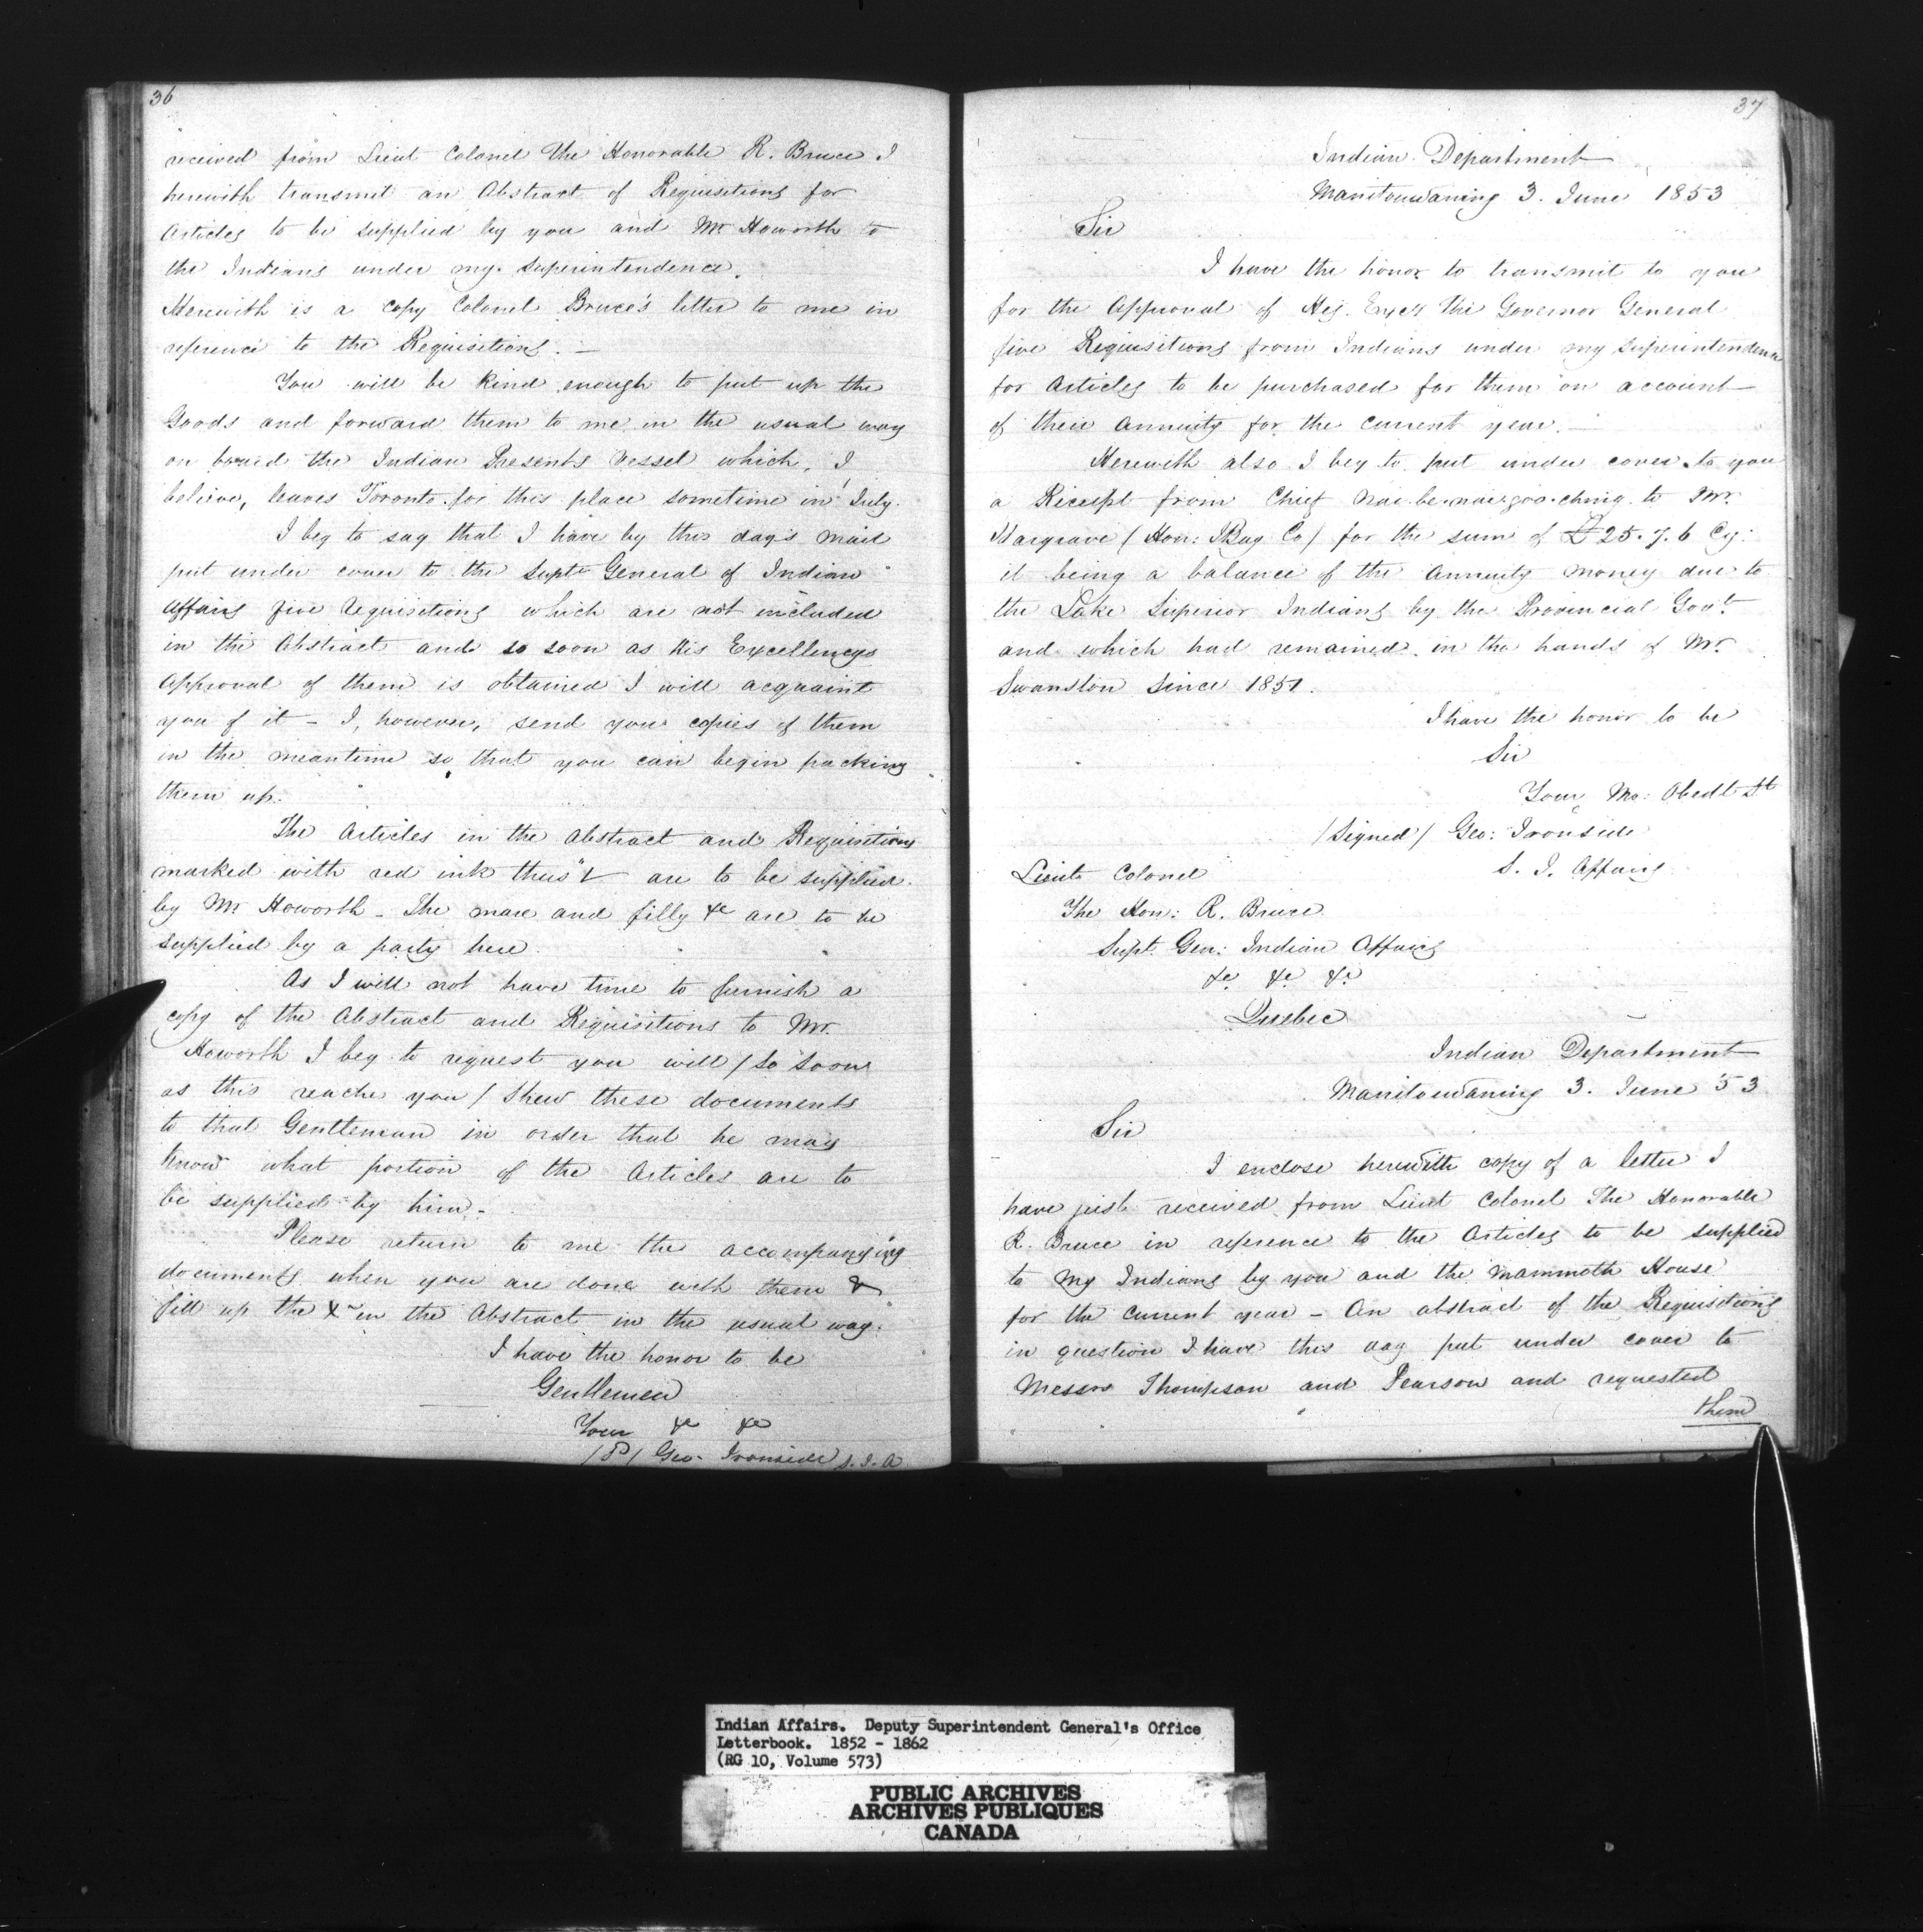 36
received from Lieut Colonel The Honorable R. Bruce I
herewith transmit an Abstract of Requisitions for
Articles to be supplied by you and Mr Haworth to
the Indians under my Superintendence.
Herewith is a copy Colonel Bruce's letter to me in
reference to the Requisitions. —
You will be kind enough to put up the
Goods and forward them to me in the usual way
on board the Indian Presents Vessel which, I
believe, leaves Toronto for this place sometime in July.
I beg to say that I have by this day's mail
put under cover to the Supt General of Indian
Affairs five requisitions which are not included
in the Abstract and so soon as His Excellencys
Approval of them is obtained I will acquaint
you of it – I, however, send you copies of them
in the meantime so that you can begin packing
them up.
The Articles in the Abstract and Requisitions
marked with red ink thus are to be supplied
by Mr Haworth – The mare and filly &c are to be
supplied by a party here.
As I will not have time to furnish a
copy of the Abstract and Requisitions to Mr.
Haworth I beg to request you will / so soon
as this reaches you / shew these documents
to that Gentleman in order that he may
know what portion of the Articles are to
be supplied by him –
Please return to me the accompanying
documents when you are done with them &
fill up the in the Abstract in the usual way.
I have the honor to be
Gentlemen
Your &c &c
/Sd/ Geo. Ironside S.I.A
37
Indian Department
Manitouwaning 3. June 1853
Sir
I have the honor to transmit to you
for the Approval of His Excy The Governor General
five Requisitions from Indians under my Superintendence
for Articles to be purchased for them on account
of their Annuity for the current year. —
Herewith also I beg to put under cover to you
a Receipt from Chief to Mr.
Hargrave / Hon: HBay Co / for the sum of £25.7.6 Cy:
it being a balance of the Annuity money due to
the Lake Superior Indians by the Provincial Govt
and which had remained in the hands of Mr.
Swanston since 1851.
I have the honor to be
Sir
Your Mo: Obedt St
/Signed/ Geo: Ironside
S. I. Affairs
Lieut Colonel
The Hon: R. Bruce
Supt. Gen: Indian Affairs
&c &c &c
Quebec
Indian Department
Manitouwaning 3. June 53
Sir
I enclose herewith copy of a letter I
have just received from Lieut Colonel The Honorable
R. Bruce in reference to the Articles to be supplied
to my Indians by you and the Mammoth House
for the current year – An abstract of the Requisitions
in question I have this day put under cover to
Messrs Thompson and Pearson and requested
them
Indian Affairs. Deputy Superintendent General's Office
Letterbook. 1852 - 1862
(RG 10, Volume 573)
PUBLIC ARCHIVES
ARCHIVES PUBLIQUES
CANADA